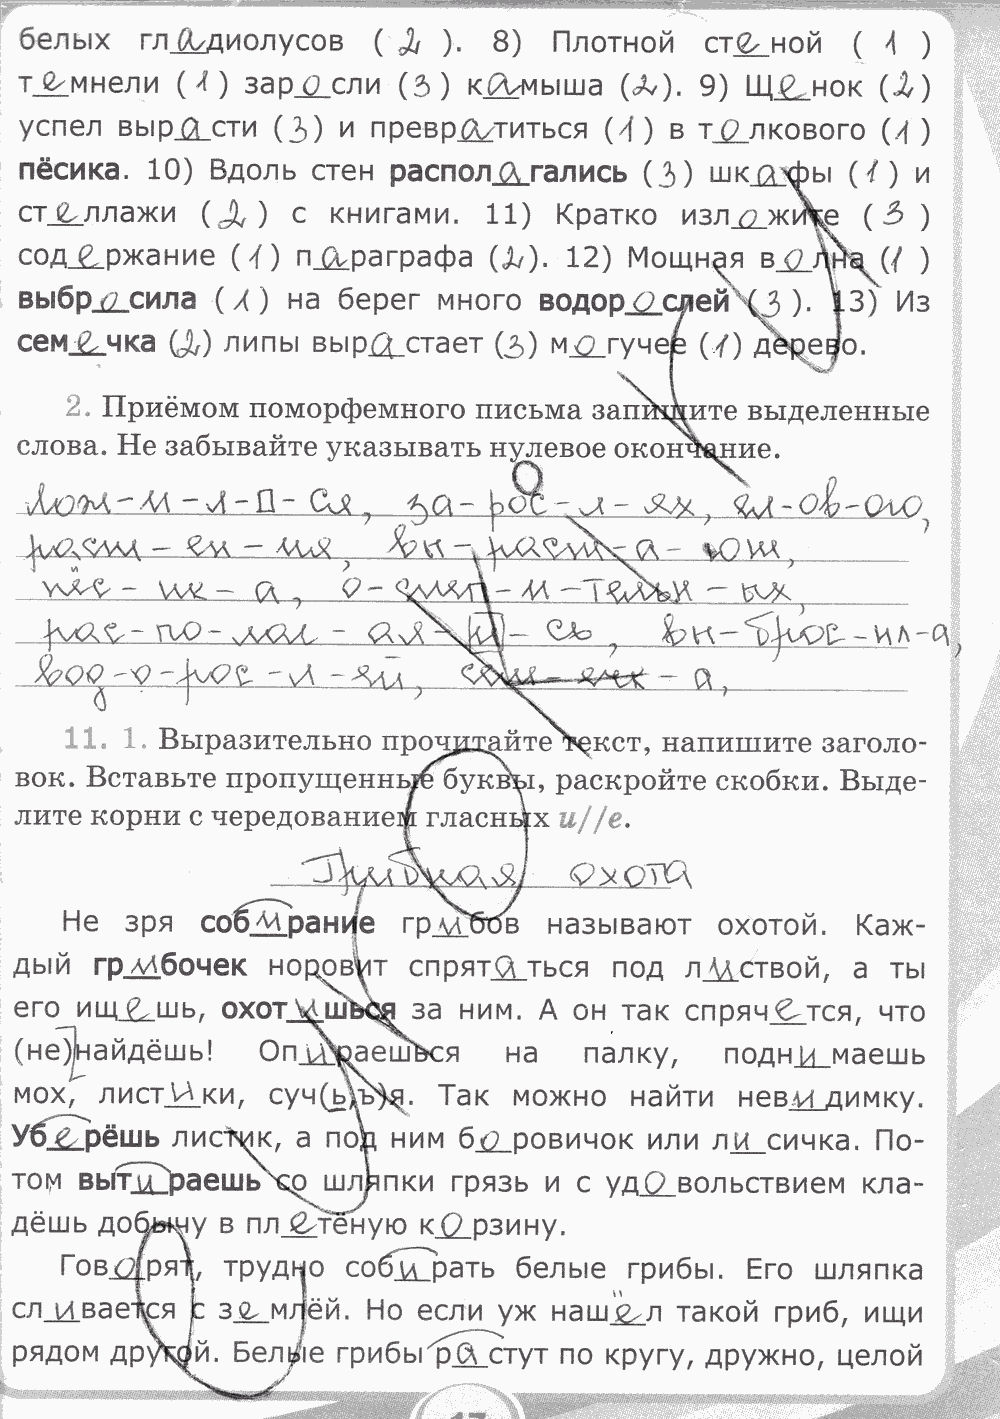 белых гладиолусов (2). 8) Плотной стеной (1)
темнели (1) заросли (3) камыша (2). 9) Щенок (2)
успел вырасти (3) и превратиться (1) в толкового (1)
пёсика. 10) Вдоль стен располагались (3) шкафы (1) и
стеллажи (2) с книгами. 11) Кратко изложите (3)
содержание (1) параграфа (2). 12) Мощная волна (1)
выбросила (1) на берег много водорослей (3). 13) Из
семечка (2) липы вырастает (3) могучее (1) дерево.
2. Приёмом поморфемного письма запишите выделенные
слова. Не забывайте указывать нулевое окончание.
лож-и-л-□-ся, за-рос-л-ях, ял-ов-ого,
раст-ен-ия, вы-раст-а-ют,
пёс-ик-а, о-слеп-и-тельн-ых,
рас-по-лаг-ал-и-сь, вы-брос-ил-а,
вод-о-рос-л-ей, сем-ечк-а,
11. 1. Выразительно прочитайте текст, напишите заголо-
вок. Вставьте пропущенные буквы, раскройте скобки. Выде-
лите корни с чередованием гласных и//е.
Грибная охота
Не зря собирание грибов называют охотой. Каж-
дый грибочек норовит спрятаться под листвой, а ты
его ищешь, охотишься за ним. А он так спрячется, что
(не)найдёшь! Опираешься на палку, поднимаешь
мох, листики, суч(ь,ъ)я. Так можно найти невидимку.
Уберёшь листик, а под ним боровичок или лисичка. По-
том вытираешь со шляпки грязь и с удовольствием кла-
дёшь добычу в плетёную корзину.
Говорят, трудно собирать белые грибы. Его шляпка
сливается с землёй. Но если уж нашёл такой гриб, ищи
рядом другой. Белые грибы растут по кругу, дружно, целой
17